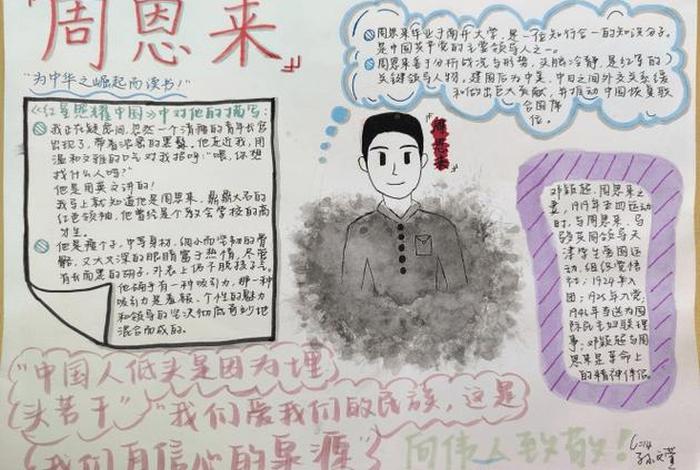 『周恩来』
“为中华之崛起而读书！”
《红星照耀中国》中对他的描写：
我正在疑房间，忽然一个清瘦的青年长官
出现了，带着浓密的黑髯。他走近我，用
温和文雅的口气对我招呼：“喂，你想
找什么人吗？”
他是用英文讲的！
我马上就知道他是周恩来，鼎鼎大名的
红色领袖，他曾经是个教会学校的高
才生。
他是瘦个子，中等身材，细小而坚韧的骨
骼，又大又深的眼睛富于热情，尽管
有长而黑的胡子，外表上仍不脱孩子气。
他确乎有一种吸引力，那一种
吸引力是羞怯、个性的魅力
和领导的坚决彻底奇妙地
混合而成的。
周恩来毕业于南开大学，是一位知行合一的知识分子，
是中国共产党的主要领导人之一。
周恩来善于分析战况与形势，头脑冷静，是红军的
关键领导人物，建国后为中美、中日之间外交关系缓
和做出巨大贡献，并推动中国恢复联
合国席
位。
周恩来
邓颖超，周恩来之
妻，1919年五四运动
时，与周恩来、马
骏共同领导天
津学生爱国运
动，组织觉悟
社；1924年入
团；1925年入党；
当选为国
际民主妇联理
事；邓颖超与周
恩来是革命上
的精神伴侣。
“中国人低头是因为埋
头苦干”“我们爱我们的民族，这是
我们自信心的泉源”
向伟人致敬！